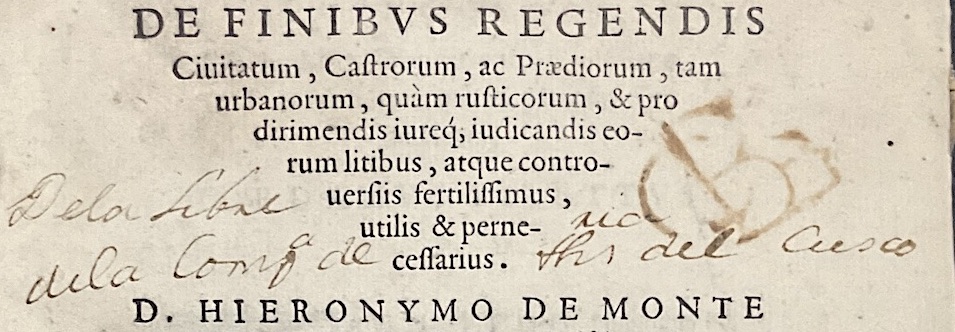 DE FINIBVS REGENDIS
Ciuitatum, Castrorum, ac Prædiorum, tam
urbanorum, quàm rusticorum, & pro
dirimendis iureq́; iudicandis eo-
rum litibus, atque contro-
uersiis fertilissimus,
utilis & perne-
cessarius.
Dela Libreria
dela Compª de Jhs del Cusco
D. HIERONYMO DE MONTE